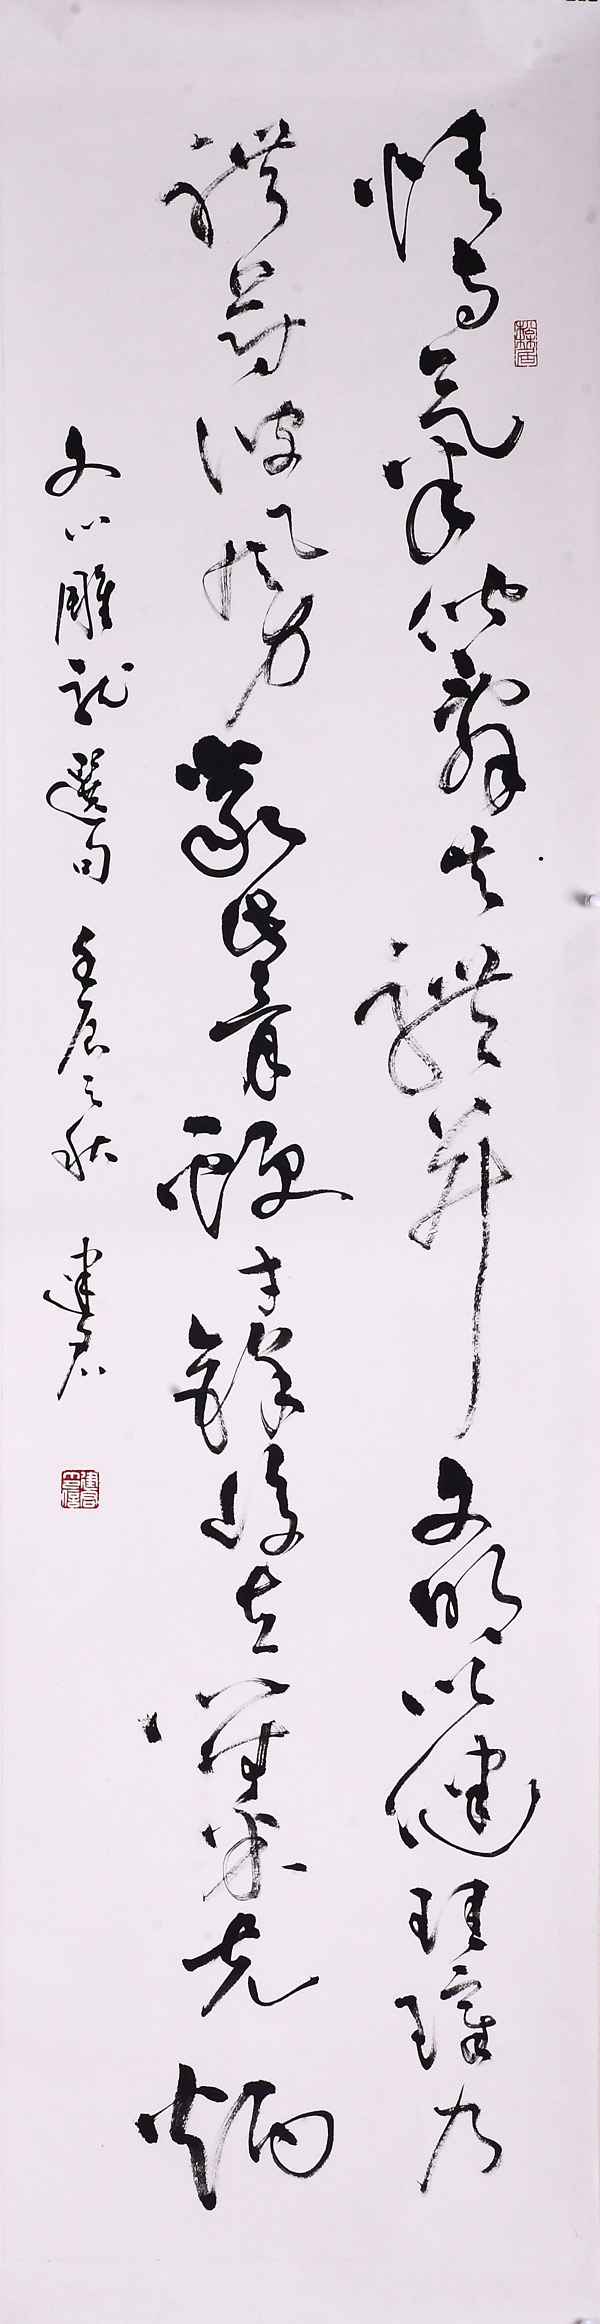 情与氣偕辭共體并文明以健珪璋乃
騁蔚彼風力嚴此骨鯁才鋒峻立符采克炳
文心雕龍選句 壬辰之秋 建君